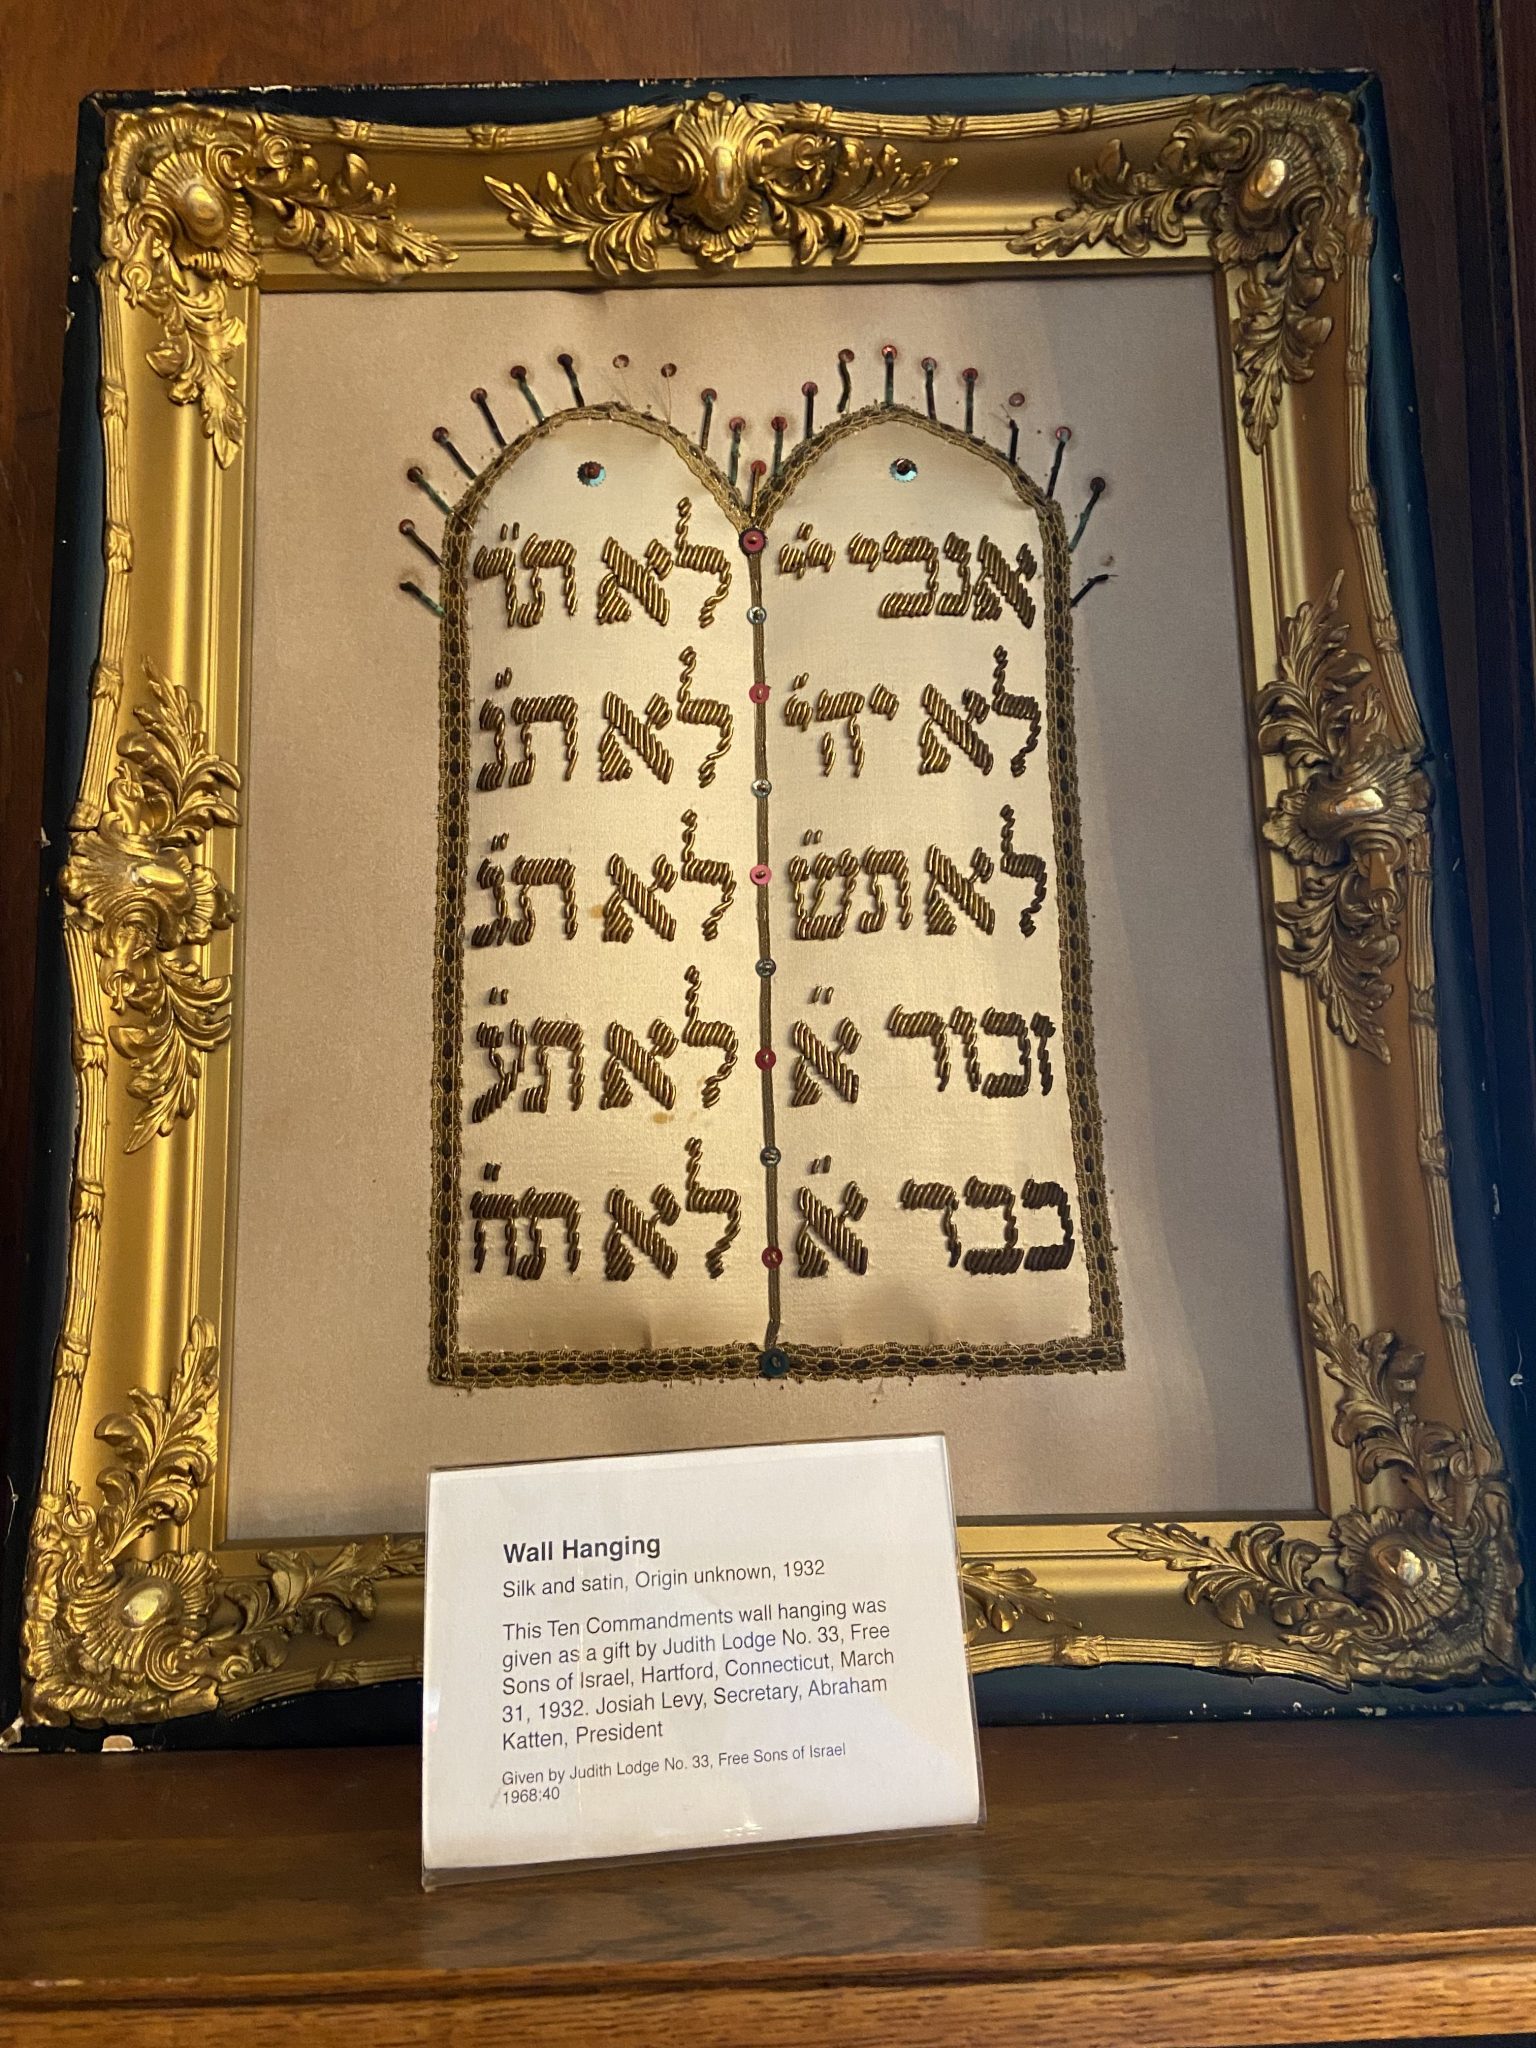 אנכי יי״
לא יהי״
לא תש״
זכור א״
כבד א״
לא תר״
לא תנ״
לא תג״
לא תע״
לא תח״
Wall Hanging
Silk and satin, Origin unknown, 1932
This Ten Commandments wall hanging was
given as a gift by Judith Lodge No. 33, Free
Sons of Israel, Hartford, Connecticut, March
31, 1932. Josiah Levy, Secretary, Abraham
Katten, President
Given by Judith Lodge No. 33, Free Sons of Israel
1968:40